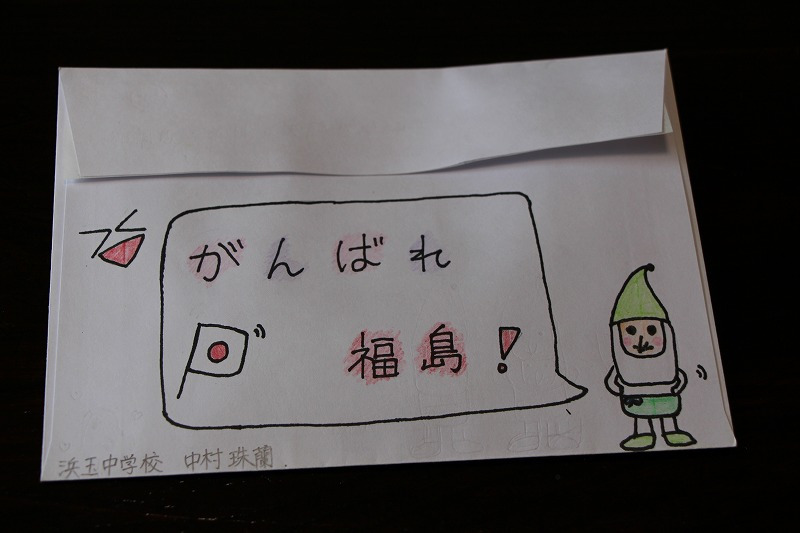 がんばれ
福島!
浜玉中学校 中村珠蘭